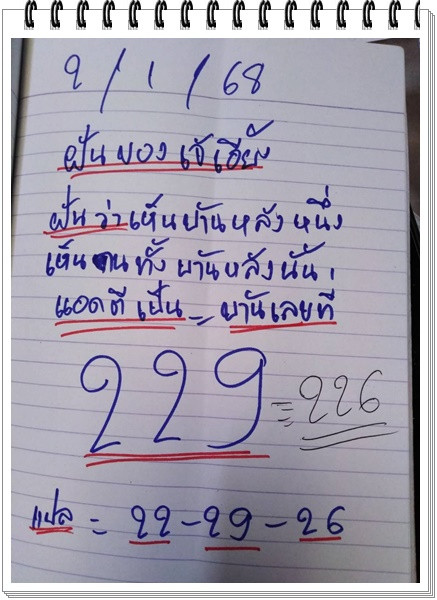 2/1/68
ฝันของเจ๊เฮียง
ฝันว่าเห็นบ้านหลังหนึ่ง
เห็นคนทั้งบ้านหลังนั้น
แอดตีเป็น = บ้านเลขที่
229 = 226
แปล = 22-29-26